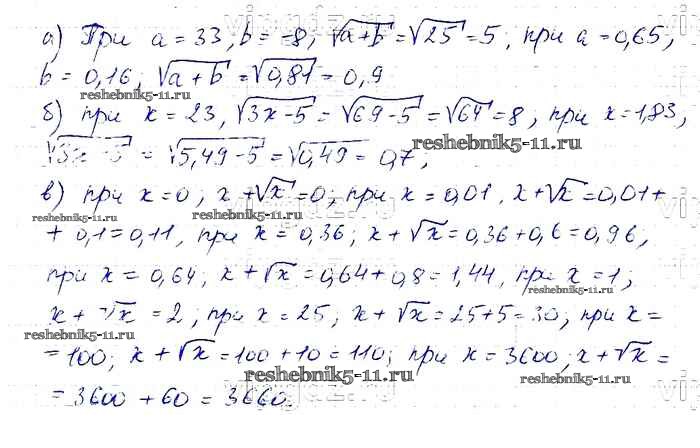 а) При a = 33, b = -8, √a+b = √25 = 5; при a = 0,65;
b = 0,16, √a+b = √0,81 = 0,9
reshebnik5-11.ru
б) при x = 23, √3x-5 = √69-5 = √64 = 8, при x = 1,83,
reshebnik5-11.ru
√3x-5 = √5,49-5 = √0,49 = 0,7;
в) при x = 0; x + √x = 0; при x = 0,01, x + √x = 0,01 +
reshebnik5-11.ru reshebnik5-11.ru
+ 0,1 = 0,11, при x = 0,36; x + √x = 0,36 + 0,6 = 0,96,
при x = 0,64; x + √x = 0,64 + 0,8 = 1,44, при x = 1;
x + √x = 2; при x = 25, x + √x = 25 + 5 = 30; при x =
reshebnik5-11.ru
= 100; x + √x = 100 + 10 = 110; при x = 3600; x + √x =
reshebnik5-11.ru
= 3600 + 60 = 3660.